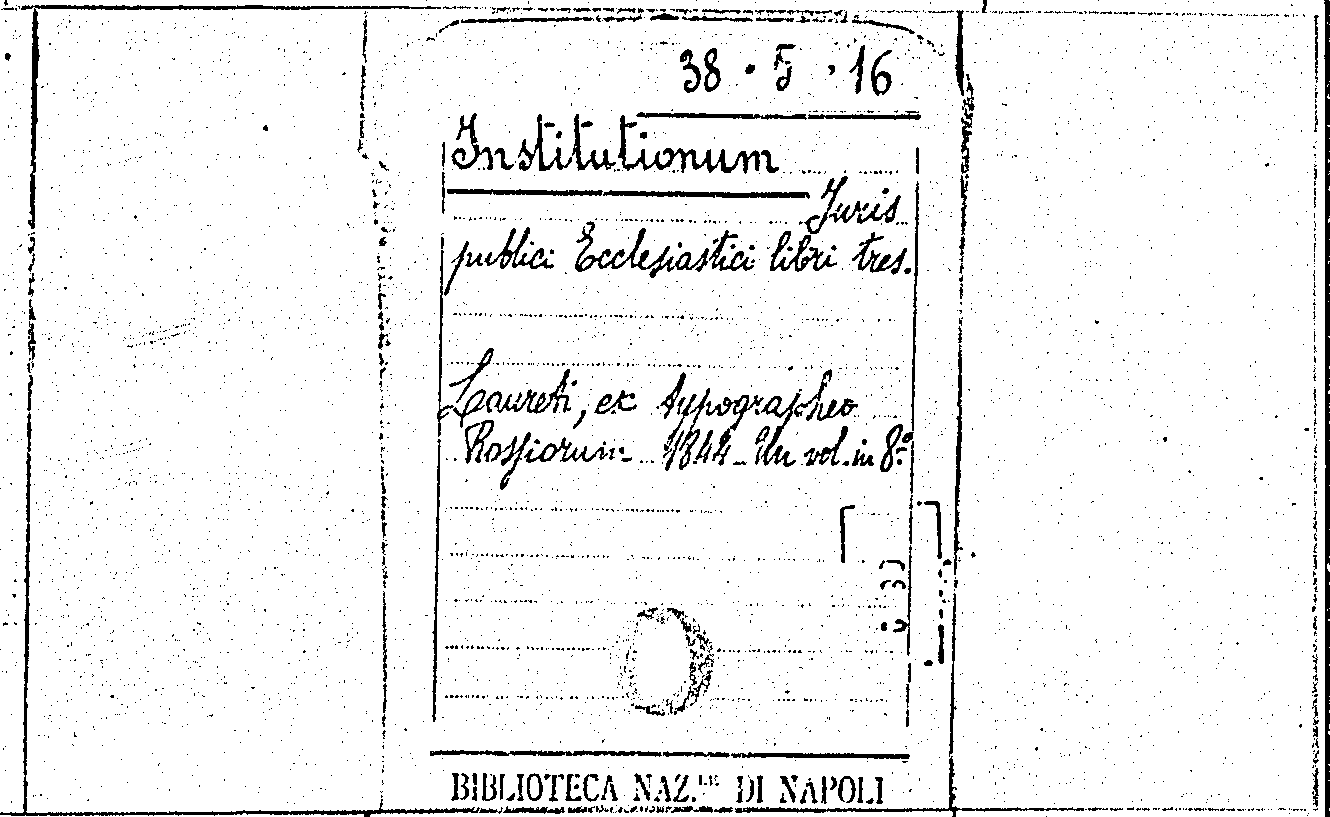 38 · 5 · 16
Institutionum
Juris
publici Ecclesiastici libri tres.
Laureti, ex typographeo
Rossiorum 1844 Un vol. in 8.º
BIBLIOTECA NAZ.LE DI NAPOLI